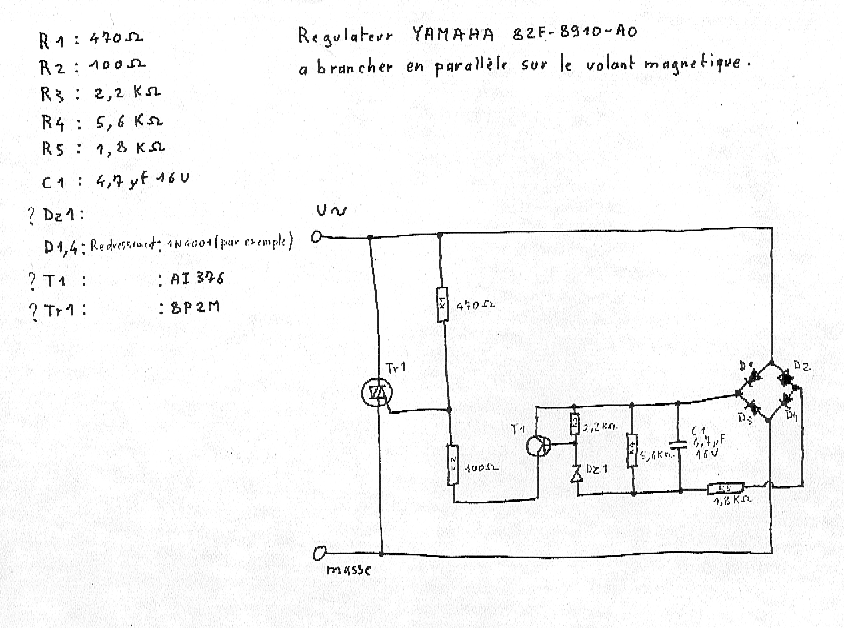 R1 : 470Ω
R2 : 100Ω
R3 : 2,2 KΩ
R4 : 5,6 KΩ
R5 : 1,8 KΩ
C1 : 4,7 µF 16V
? Dz1 :
D1,4 : Redressment : 1N4001 (par exemple)
? T1 : : AI 376
? Tr1 : : 8P2M
Regulateur YAMAHA 82F-8910-A0
a brancher en parallèle sur le volant magnetique.
U~
R1
470Ω
Tr1
100Ω
T1
2,2KΩ
Dz1
R4
5,6KΩ
C1
4,7µF
16V
D1
D2
D3
D4
R5
1,8KΩ
masse